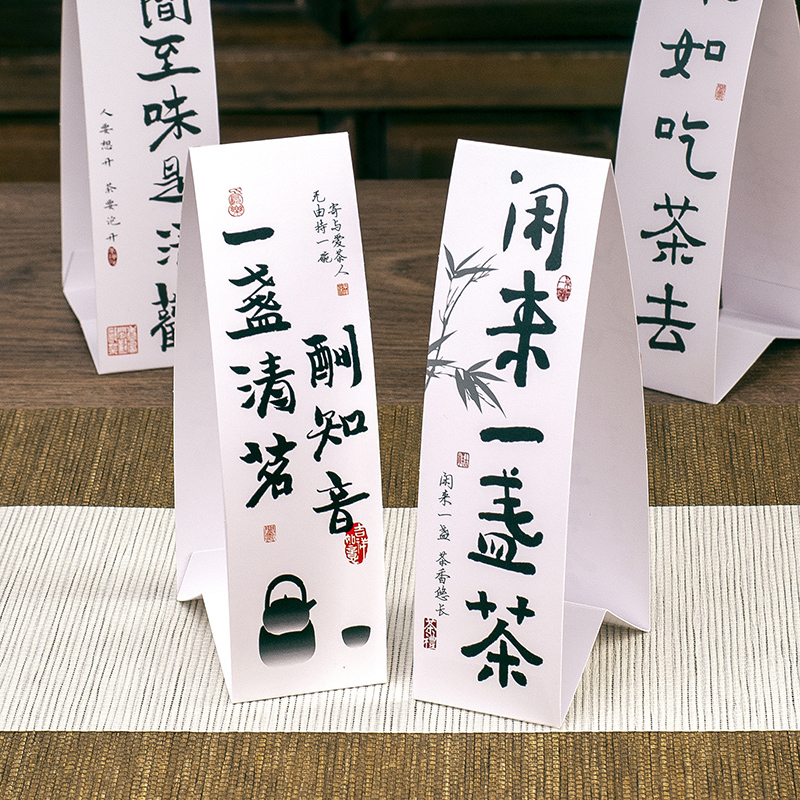 间至味是清欢
人要想开 茶要泡开
如吃茶去
一盏清茗
酬知音
无由持一碗
寄与爱茶人
吉祥如意
闲来一盏茶
闲来一盏 茶香悠长